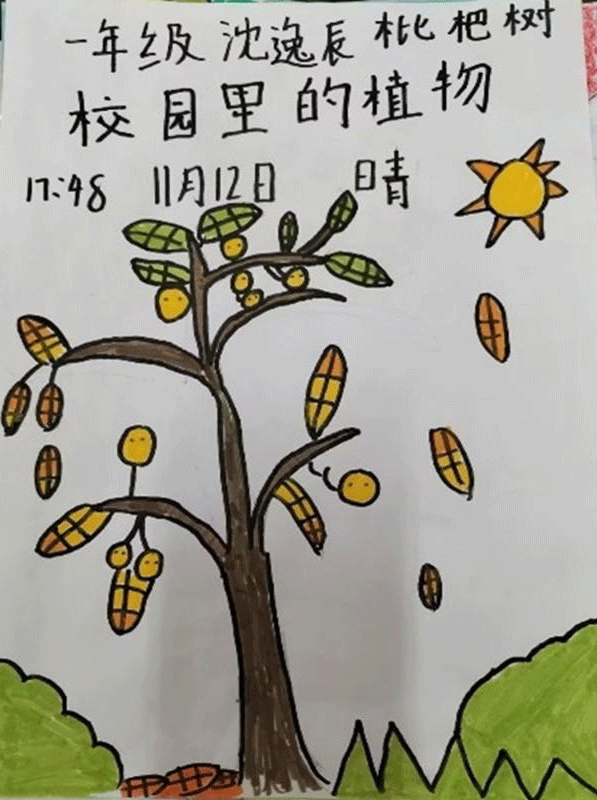 一年级 沈逸辰 枇杷树
校园里的植物
17:48 11月12日 晴